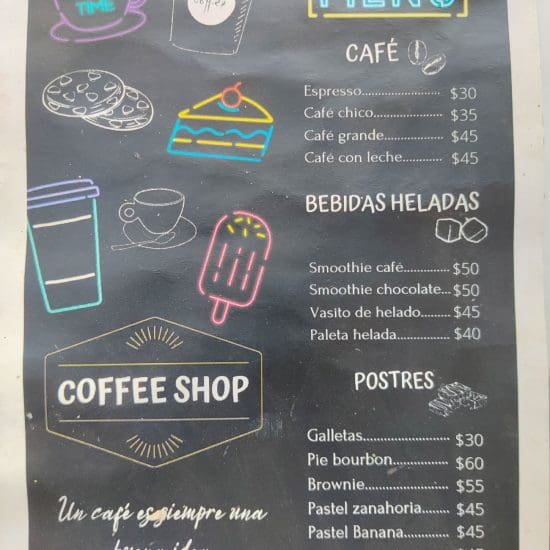 TIME
Coffee
MENÚ
CAFÉ
Espresso........................ $30
Café chico................... $35
Café grande............... $45
Café con leche........... $45
BEBIDAS HELADAS
Smoothie café............. $50
Smoothie chocolate... $50
Vasito de helado......... $45
Paleta helada............... $40
COFFEE SHOP
POSTRES
Galletas........................ $30
Pie bourbon................ $60
Brownie........................ $55
Pastel zanahoria........ $45
Pastel Banana............. $45
Un café es siempre una